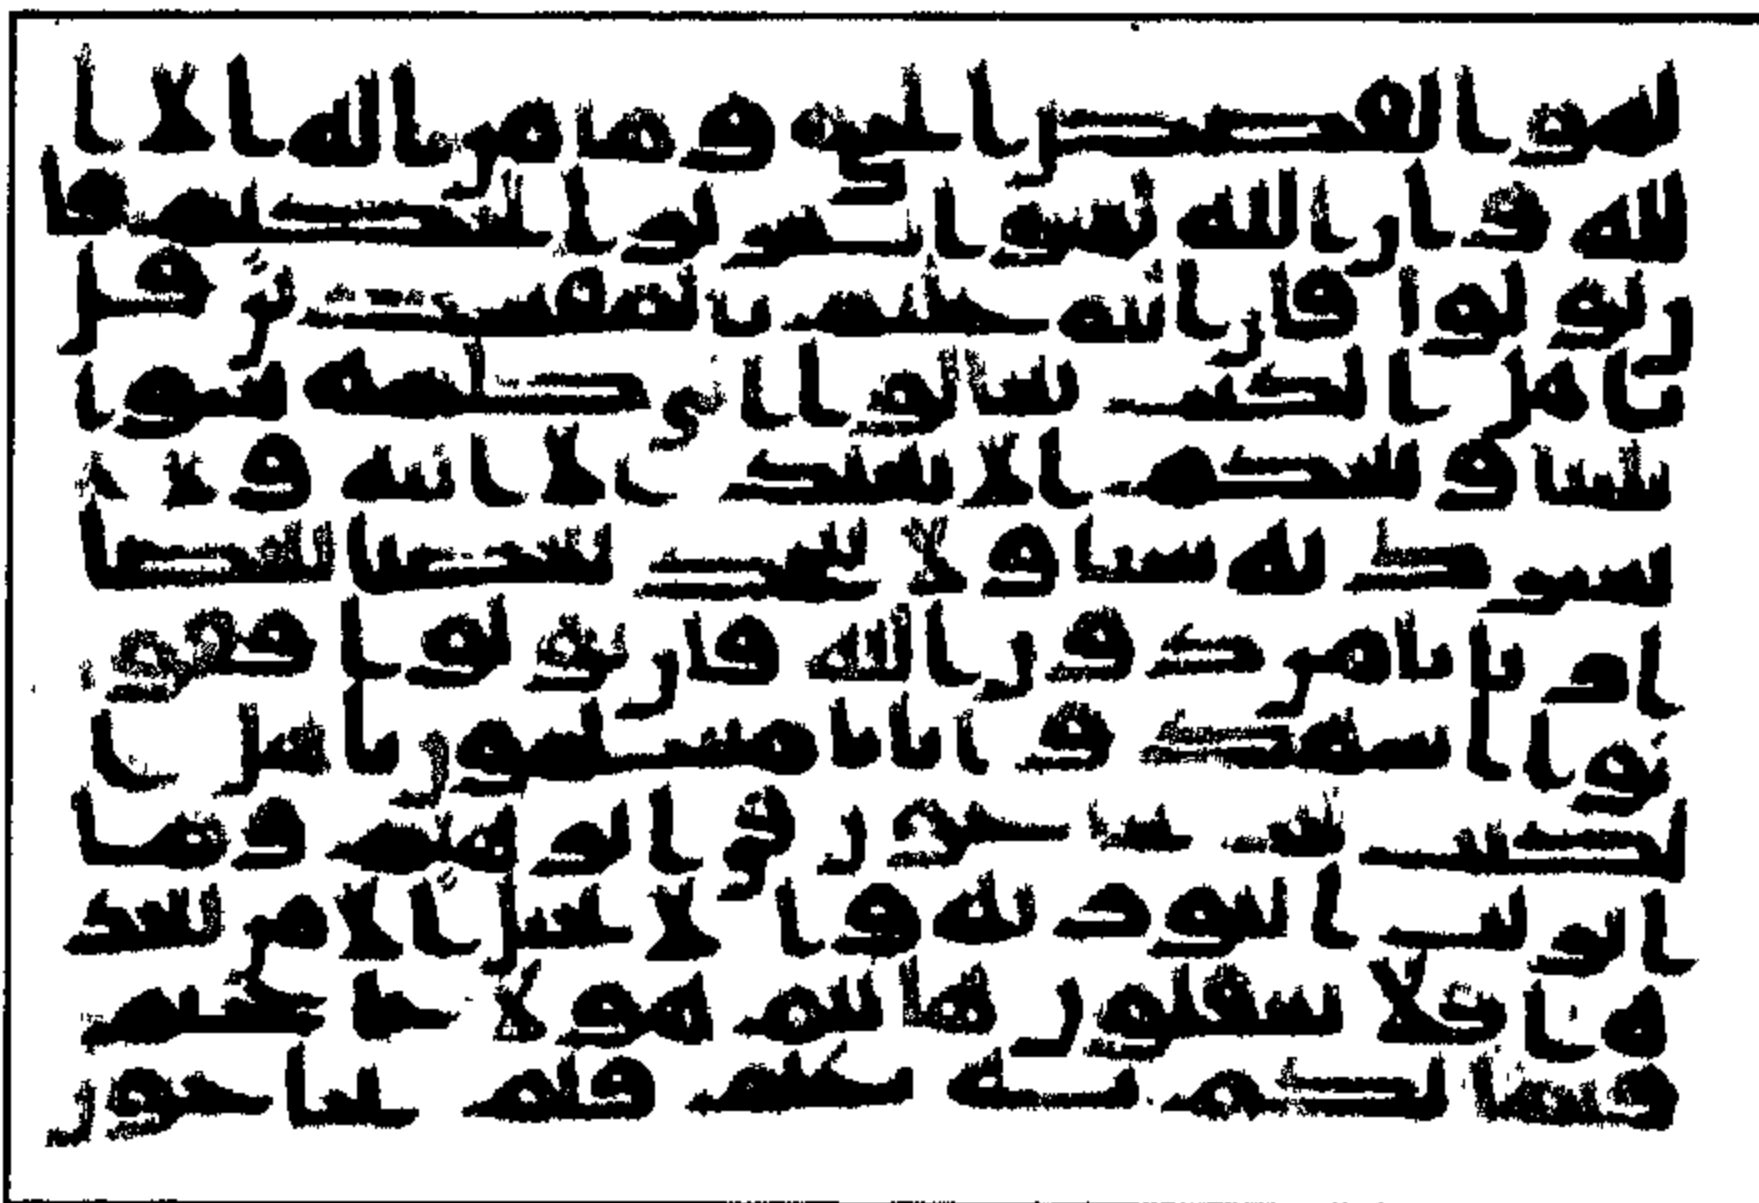 لهو القصص الحق وما من اله الا ا
لله وان الله لهو العزيز الحكيم فا
ن تولوا فان الله عليم بالمفسدين قل
ياهل الكتب تعالوا الى كلمة سوا
بيننا وبينكم الا نعبد الا الله ولا
نشرك به شيا ولا يتخذ بعضنا بعضا
اربابا من دون الله فان تولوا فقو
لوا اشهدوا بانا مسلمون ياهل ا
لكتب لم تحاجون في ابرهيم وما
انزلت التورية والانجيل الا من بعد
ه افلا تعقلون هانتم هولا حاججتم
فيما لكم به علم فلم تحاجون